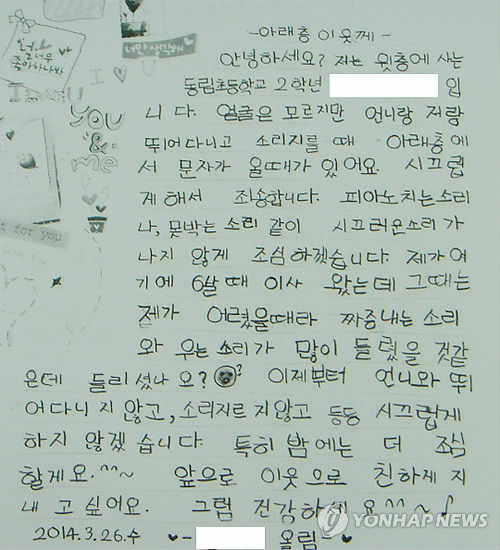 -아래층 이웃께-
안녕하세요? 저는 윗층에 사는
동림초등학교 2학년 입
니다. 얼굴은 모르지만 언니랑 저랑
뛰어다니고 소리지를 때 아래층에
서 문자가 올때가 있어요. 시끄럽
게 해서 죄송합니다. 피아노치는소리
나, 못박는 소리 같이 시끄러운소리가
나지 않게 조심하겠습니다. 제가 여
기에 6살 때 이사 왔는데 그때는
제가 어렸을때라 짜증내는 소리
와 우는 소리가 많이 들렸을 것같
은데 들리셨나요? ? 이제부터 언니와 뛰
어다니지 않고, 소리지르지않고 등등 시끄럽게
하지 않겠습니다. 특히 밤에는 더 조심
할게요.^^~ 앞으로 이웃으로 친하게 지
내고 싶어요. 그럼 건강하세요^^~♪
2014.3.26.수 ♥- 올림-♥
너만 생각해
너.. 너무
좋아하나봐
I
I
YOU
&
me
for you
YONHAPNEWS